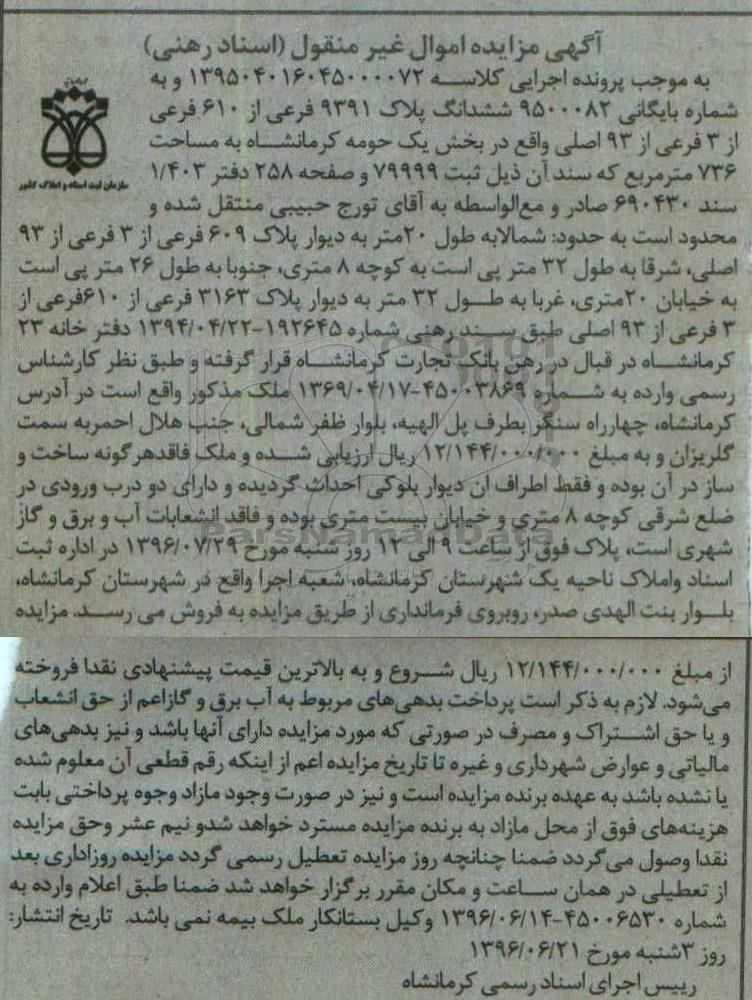 آگهی مزایده اموال غیر منقول (اسناد رهنی)
به موجب پرونده اجرایی کلاسه ۱۳۹۵۰۴۰۱۶۰۴۵۰۰۰۰۷۲ و به
شماره بایگانی ۹۵۰۰۰۸۲ ششدانگ پلاک ۹۳۹۱ فرعی از ۶۱۰ فرعی
از ۳ فرعی از ۹۳ اصلی واقع در بخش یک حومه کرمانشاه به مساحت
۷۳۶ مترمربع که سند آن ذیل ثبت ۷۹۹۹۹ و صفحه ۲۵۸ دفتر ۱/۴۰۳
سازمان ثبت اسناد و املاک کشور
سند ۶۹۰۴۳۰ صادر و مع‌الواسطه به آقای تورج حبیبی منتقل شده و
محدود است به حدود: شمالابه طول ۲۰متر به دیوار پلاک ۶۰۹ فرعی از ۳ فرعی از ۹۳
اصلی، شرقا به طول ۳۲ متر پی است به کوچه ۸ متری، جنوبا به طول ۲۶ متر پی است
به خیابان ۲۰متری، غربا به طول ۳۲ متر به دیوار پلاک ۳۱۶۳ فرعی از ۶۱۰فرعی از
۳ فرعی از ۹۳ اصلی طبق سند رهنی شماره ۱۹۲۶۴۵-۱۳۹۴/۰۴/۲۲ دفتر خانه ۲۳
کرمانشاه در قبال در رهن بانک تجارت کرمانشاه قرار گرفته و طبق نظر کارشناس
رسمی وارده به شماره ۴۵۰۰۳۸۶۹-۱۳۶۹/۰۴/۱۷ ملک مذکور واقع است در آدرس
کرمانشاه، چهارراه سنگر بطرف پل الهیه، بلوار ظفر شمالی، جنب هلال احمربه سمت
گلریزان و به مبلغ ۱۲/۱۴۴/۰۰۰/۰۰۰ ریال ارزیابی شده و ملک فاقدهرگونه ساخت و
ساز در آن بوده و فقط اطراف ان دیوار بلوکی احداث گردیده و دارای دو درب ورودی در
ضلع شرقی کوچه ۸ متری و خیابان بیست متری بوده و فاقد انشعابات آب و برق و گاز
ParsNamadData
شهری است، پلاک فوق از ساعت ۹ الی ۱۲ روز شنبه مورخ ۱۳۹۶/۰۷/۲۹ در اداره ثبت
اسناد واملاک ناحیه یک شهرستان کرمانشاه، شعبه اجرا واقع در شهرستان کرمانشاه،
بلوار بنت الهدی صدر، روبروی فرمانداری از طریق مزایده به فروش می رسد. مزایده
از مبلغ ۱۲/۱۴۴/۰۰۰/۰۰۰ ریال شروع و به بالاترین قیمت پیشنهادی نقدا فروخته
می‌شود. لازم به ذکر است پرداخت بدهی‌های مربوط به آب برق و گازاعم از حق انشعاب
و یا حق اشتراک و مصرف در صورتی که مورد مزایده دارای آنها باشد و نیز بدهی‌های
مالیاتی و عوارض شهرداری و غیره تا تاریخ مزایده اعم از اینکه رقم قطعی آن معلوم شده
یا نشده باشد به عهده برنده مزایده است و نیز در صورت وجود مازاد وجوه پرداختی بابت
هزینه‌های فوق از محل مازاد به برنده مزایده مسترد خواهد شدو نیم عشر وحق مزایده
نقدا وصول می‌گردد ضمنا چنانچه روز مزایده تعطیل رسمی گردد مزایده روزاداری بعد
از تعطیلی در همان ساعت و مکان مقرر برگزار خواهد شد ضمنا طبق اعلام وارده به
شماره ۴۵۰۰۶۵۳۰-۱۳۹۶/۰۶/۱۴ وکیل بستانکار ملک بیمه نمی باشد. تاریخ انتشار:
روز ۳شنبه مورخ ۱۳۹۶/۰۶/۲۱
رییس اجرای اسناد رسمی کرمانشاه